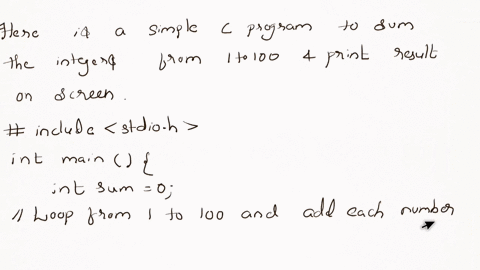 Here is a simple C program to sum
the integers from 1 to 100 & print result
on screen.
# include <stdio.h>
int main () {
int sum = 0;
// Loop from 1 to 100 and add each number